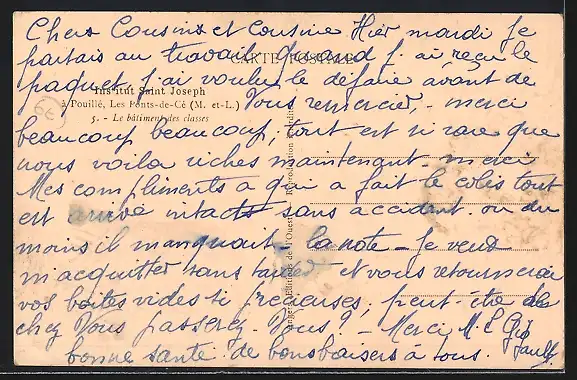 Chers Cousins et Cousine Hier mardi je
partais au travail quand j'ai reçu le
CARTE POSTALE
paquet j'ai voulu le défaire avant de
Institut Saint Joseph
à Pouillé, Les Ponts-de-Cé (M. et-L.)
Vous remercier, - merci
5. - Le bâtiment des classes
beaucoup beaucoup; tout est si rare que
nous voila riches maintenant - merci
Mes compliments a qui a fait le colis tout
est arrivé intacts sans accident. ou du
moins il manquait - la note - Je veux
m'acquitter sans tarder et vous retournerai
vos boites vides si precieuses, peut être de
chez Vous passerez - Vous? - Merci M. L
bonne santé de bons baisers à tous.
Reproduction interdite
Editions de l'Ouest